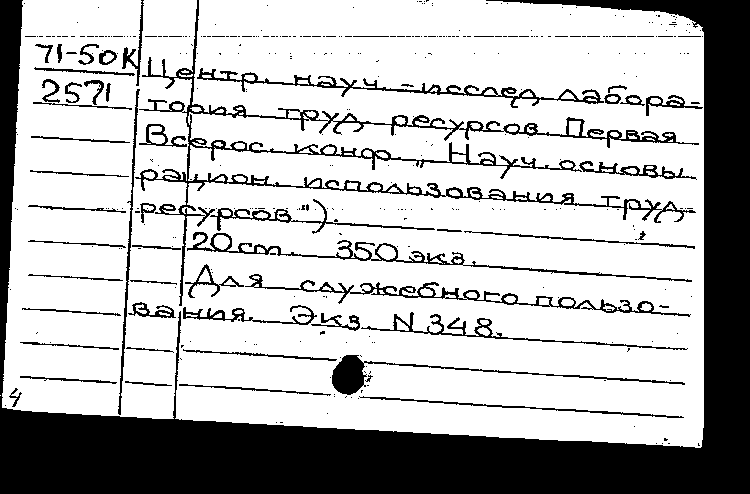 71-50К Центр. науч.-исслед. лабора-
2571 тория труд. ресурсов. Первая
Всерос. конф. „Науч. основы
рацион. использования труд.
ресурсов").
20 cm. 350 экз.
Для служебного пользо-
вания. Экз. N 348.
4